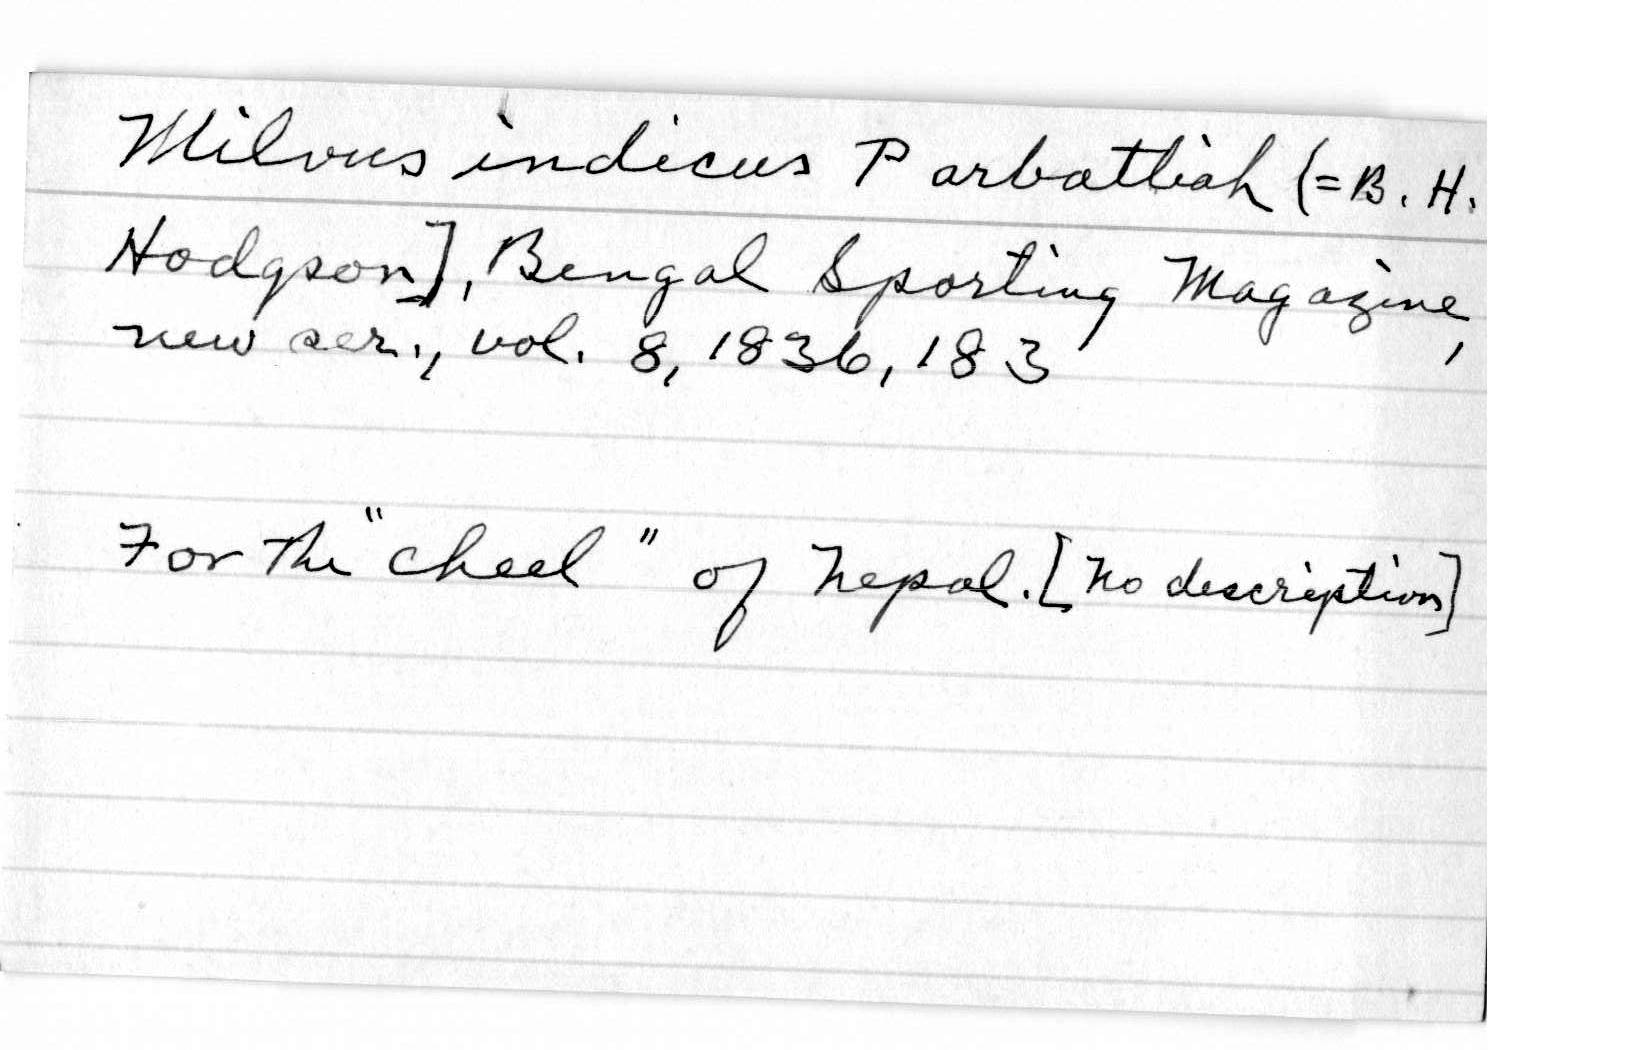 Milvus indicus Parbattiah (=B. H.
Hodgson], Bengal Sporting Magazine,
new ser., vol. 8, 1836, 183
For the "cheel" of Nepal. [No description]